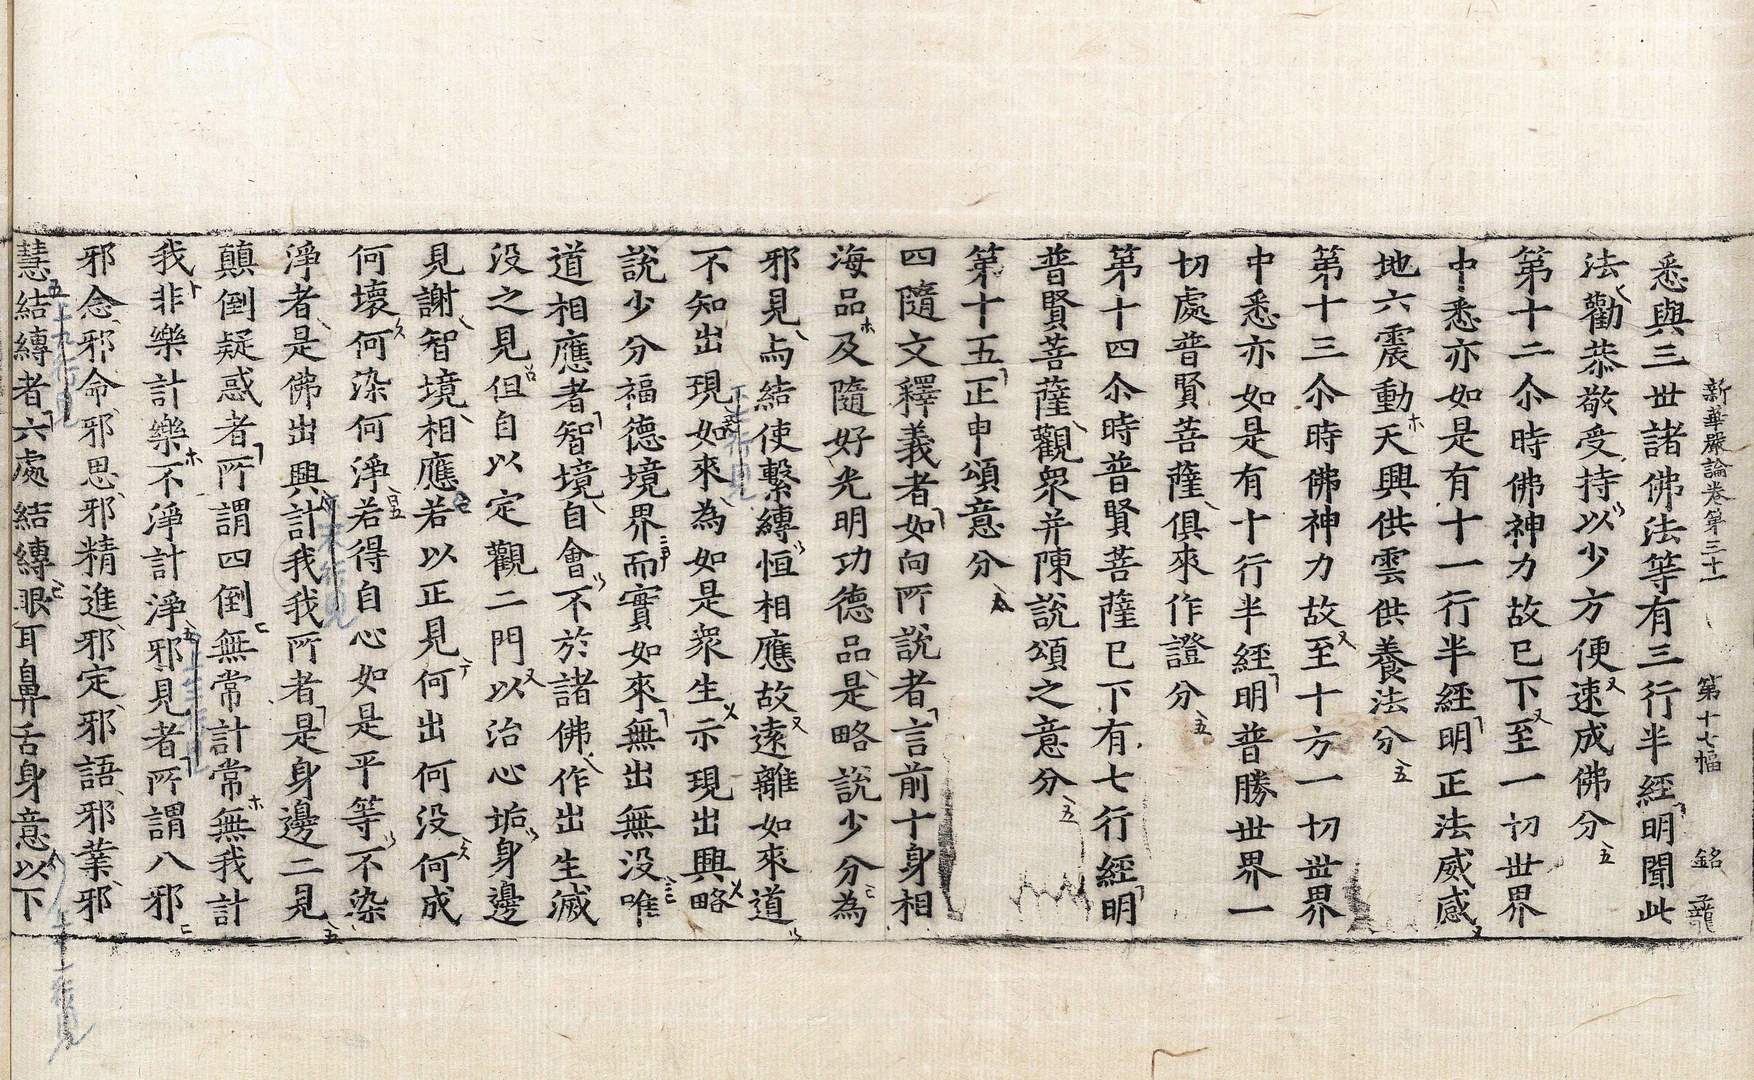 新華嚴論卷第三十一　第十七幅　銘
悉與三世諸佛法等有三行半經明聞此
法勸恭敬受持以少方便速成佛分
第十二尒時佛神力故已下至一切世界
中悉亦如是有十一行半經明正法威感
地六震動天興供雲供養法分
第十三尒時佛神力故至十方一切世界
中悉亦如是有十行半經明普勝世界一
切處普賢菩薩俱來作證分
第十四尒時普賢菩薩已下有七行經明
普賢菩薩觀衆并陳說頌之意分
第十五正申頌意分
四隨文釋義者如向所說者言前十身相
海品及隨好光明功德品是略說少分為
邪見与結使繫縛恒相應故遠離如來道
不知出現如來為如是衆生示現出興略
說少分福德境界而實如來無出無没唯
道相應者智境自會不於諸佛作出生滅
没之見但自以定觀二門以治心垢身邊
見謝智境相應若以正見何出何没何成
何壞何染何淨若得自心如是平等不染
淨者是佛出興計我我所者是身邊二見
顛倒疑惑者所謂四倒無常計常無我計
我非樂計樂不淨計淨邪見者所謂八邪
邪念邪命邪思邪精進邪定邪語邪業邪
慧結縛者六處結縛眼耳鼻舌身意以下